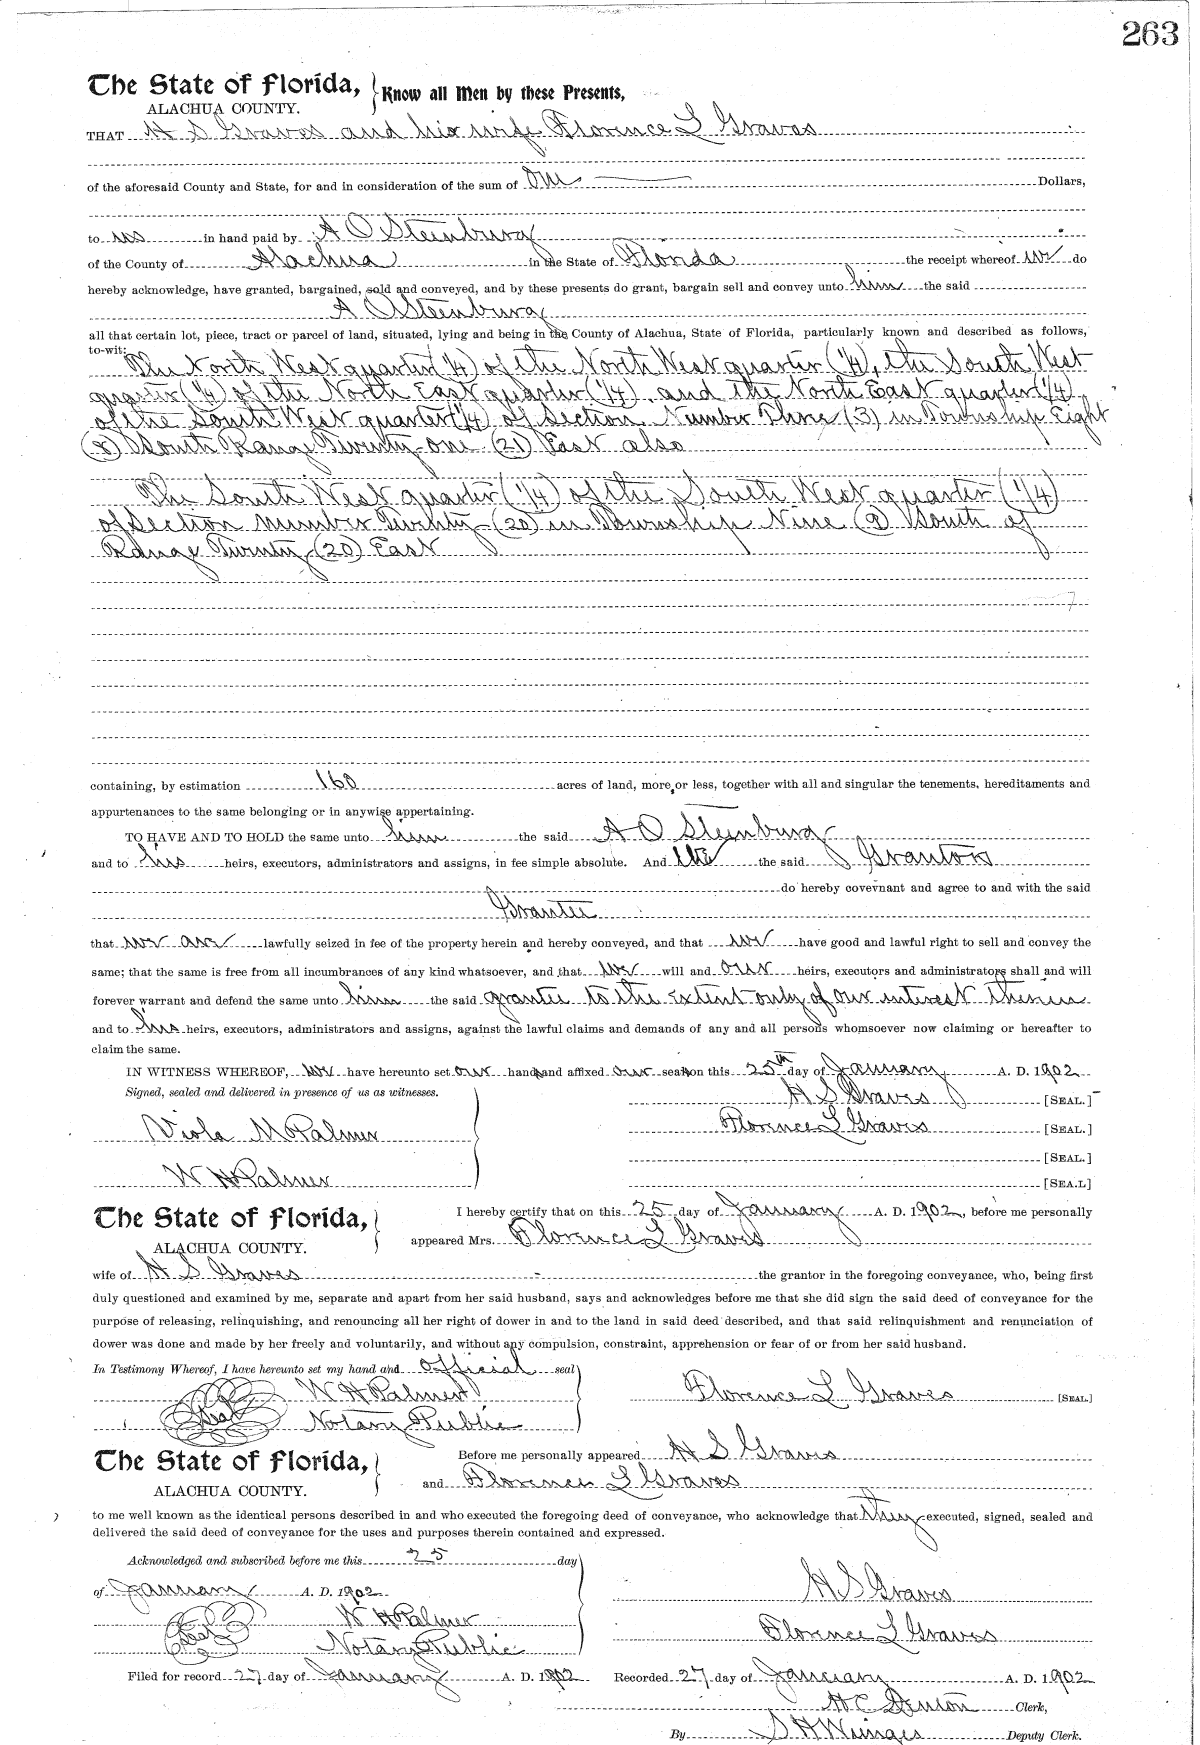 263
The State of Florida, Know all Men by these Presents,
ALACHUA COUNTY.
THAT H S Graves and his wife Florence L Graves
of the aforesaid County and State, for and in consideration of the sum of One Dollars,
to us in hand paid by A O Steenburg
of the County of Alachua in the State of Florida the receipt whereof we do
hereby acknowledge, have granted, bargained, sold and conveyed, and by these presents do grant, bargain sell and convey unto him the said
A O Steenburg
all that certain lot, piece, tract or parcel of land, situated, lying and being in the County of Alachua, State of Florida, particularly known and described as follows,
to-wit:
The North West quarter (1/4) of the North West quarter (1/4), the South West
quarter (1/4) of the North East quarter (1/4), and the North East quarter (1/4)
of the South West quarter (1/4) of Section Number Three (3) in Township Eight
(8) South Range Twenty-one (21) East also
The South West quarter (1/4) of the South West quarter (1/4)
of Section number Twenty (20) in Township Nine (9) South of
Range Twenty (20) East
containing, by estimation 160 acres of land, more or less, together with all and singular the tenements, hereditaments and
appurtenances to the same belonging or in anywise appertaining.
TO HAVE AND TO HOLD the same unto him the said A O Steenburg
and to his heirs, executors, administrators and assigns, in fee simple absolute. And we the said Grantors
do hereby covevnant and agree to and with the said
Grantee
that we are lawfully seized in fee of the property herein and hereby conveyed, and that we have good and lawful right to sell and convey the
same; that the same is free from all incumbrances of any kind whatsoever, and that we will and our heirs, executors and administrators shall and will
forever warrant and defend the same unto him the said grantee to the extent only of our interest therein
and to his heirs, executors, administrators and assigns, against the lawful claims and demands of any and all persons whomsoever now claiming or hereafter to
claim the same.
IN WITNESS WHEREOF, we have hereunto set our hand and affixed our seal on this 25th day of January A. D. 1902
Signed, sealed and delivered in presence of us as witnesses. H S Graves [SEAL.]
Viola M Palmer Florence L Graves [SEAL.]
[SEAL.]
W H Palmer [SEA.L]
The State of Florida, I hereby certify that on this 25 day of January A. D. 1902, before me personally
ALACHUA COUNTY. appeared Mrs. Florence L Graves
wife of H S Graves the grantor in the foregoing conveyance, who, being first
duly questioned and examined by me, separate and apart from her said husband, says and acknowledges before me that she did sign the said deed of conveyance for the
purpose of releasing, relinquishing, and renouncing all her right of dower in and to the land in said deed described, and that said relinquishment and renunciation of
dower was done and made by her freely and voluntarily, and without any compulsion, constraint, apprehension or fear of or from her said husband.
In Testimony Whereof, I have hereunto set my hand and official seal
W H Palmer Florence L Graves [SEAL]
Seal Notary Public
The State of Florida, Before me personally appeared H S Graves
ALACHUA COUNTY. and Florence L Graves
to me well known as the identical persons described in and who executed the foregoing deed of conveyance, who acknowledge that they executed, signed, sealed and
delivered the said deed of conveyance for the uses and purposes therein contained and expressed.
Acknowledged and subscribed before me this 25 day
of January A. D. 1902 H S Graves
W H Palmer
Seal Notary Public Florence L Graves
Filed for record 27 day of January A. D. 1902 Recorded 27 day of January A. D. 1902
H C Denton Clerk,
By S H Wienges Deputy Clerk.